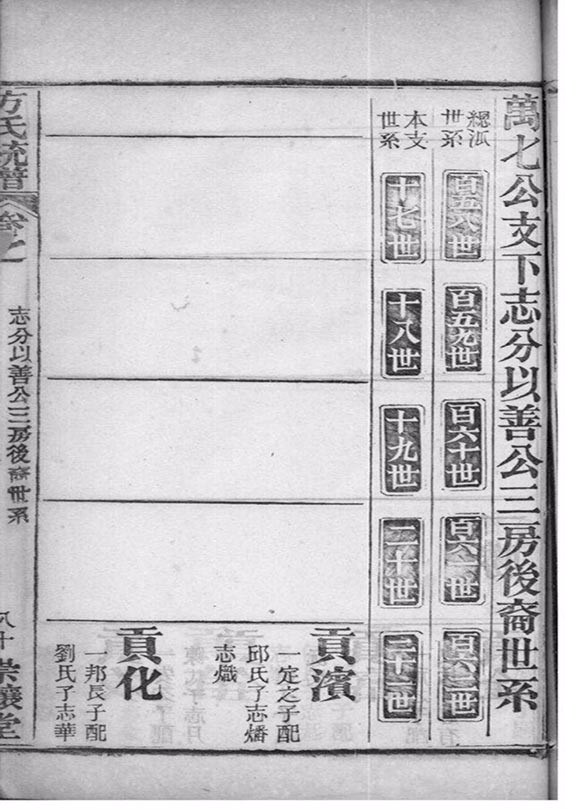 萬七公支下志分以善公三房後裔世系
總派世系
百五八世
百五九世
百六十世
百六一世
百六二世
本支世系
十七世
十八世
十九世
二十世
二十一世
貢濱
一定之子配
邱氏子志燔
志熾
貢化
一邦辰子配
劉氏子志華
方氏統譜
卷七
志分以善公三房後裔世系
八十
崇讓堂